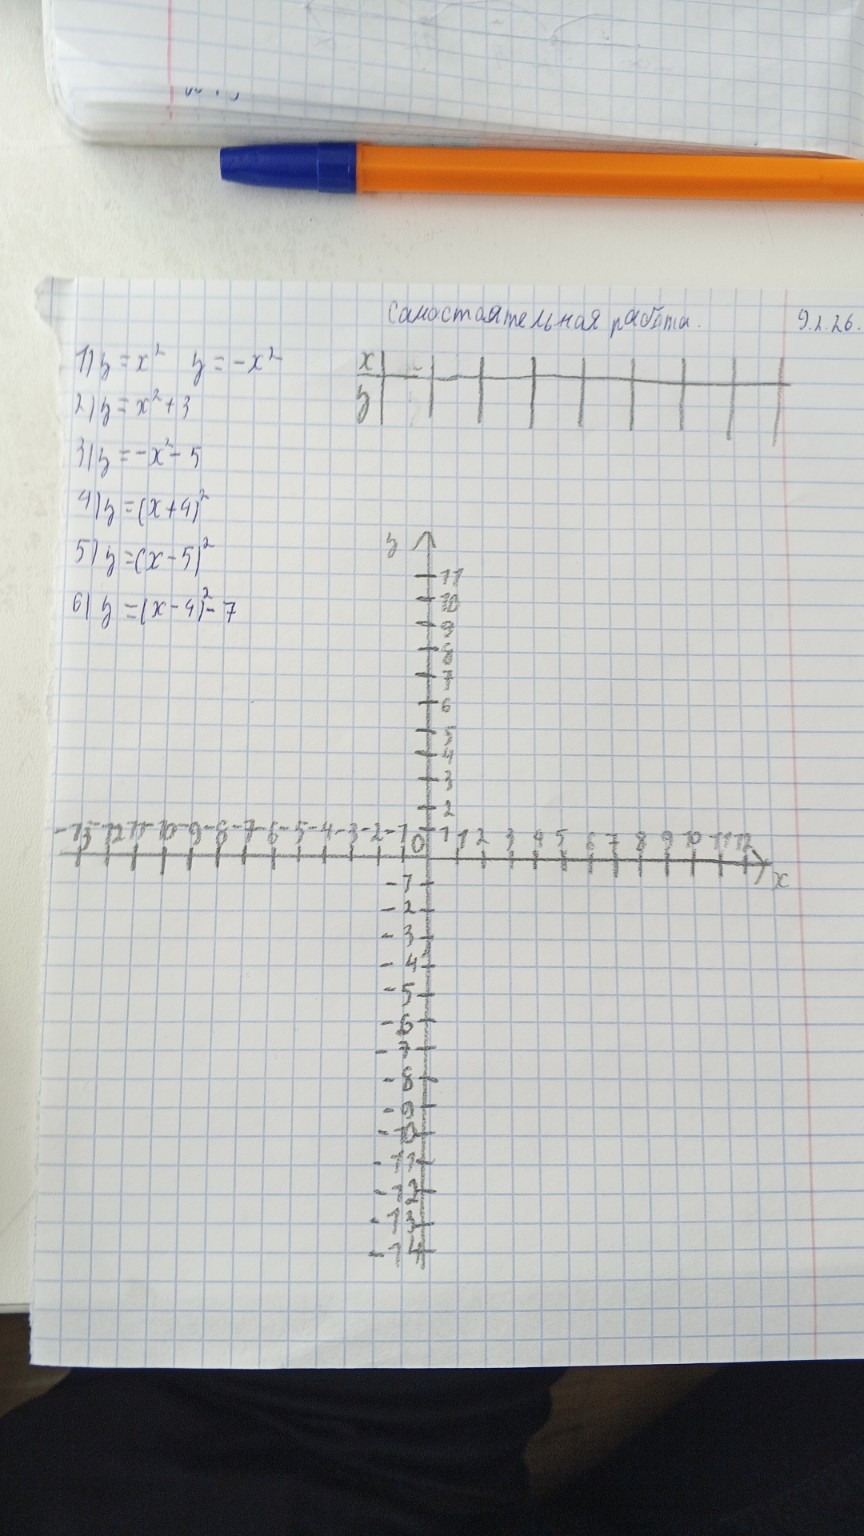 Самостоятельная работа. 9.2.26.
1) y = x² y = -x²
2) y = x² + 3
3) y = -x² - 5
4) y = (x + 4)²
5) y = (x - 5)²
6) y = (x - 4)² - 7
x
y
y
11
10
9
8
7
6
5
4
3
2
1
-13 -12 -11 -10 -9 -8 -7 -6 -5 -4 -3 -2 -1 0 1 2 3 4 5 6 7 8 9 10 11 12
x
-1
-2
-3
-4
-5
-6
-7
-8
-9
-10
-11
-12
-13
-14